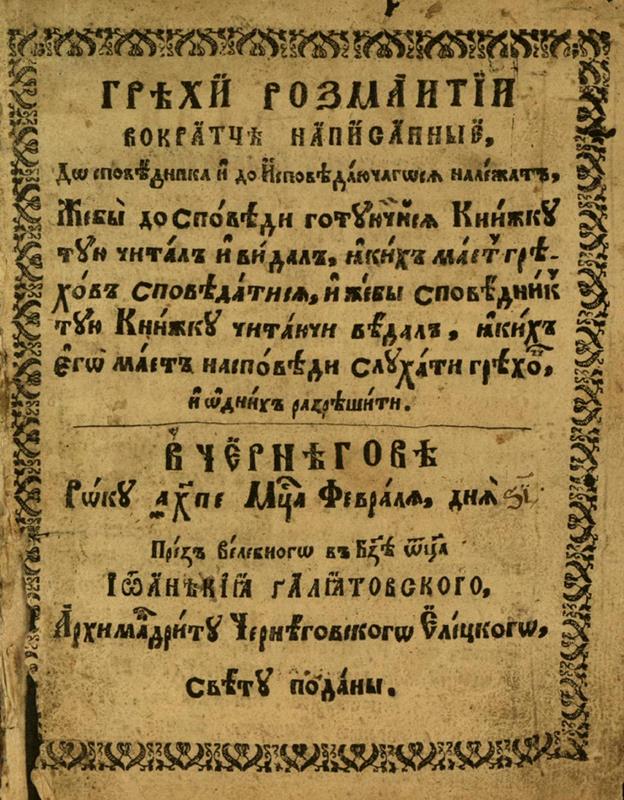 ГРѢХИ РОЗМАИТІИ
ВОКРАТЧѢ НАПИСАННЫЕ,
До сповѣдника и до Исповѣдаючагося належатъ,
Жебы до сповѣди готуючійся Книжку
тую читалъ и видалъ, якихъ маетъ грѣ-
ховъ сповѣдатися, и жебы сповѣдникъ
тую Книжку читаючи вѣдалъ, якихъ
его маетъ насповѣди слухати грѣхо̑,
и ѿднихъ разрѣшити.
В ЧЕРНѢГОВѢ
Рѡку ҂ахпе Мц҃а Февраля, дня ѕі҃
Презъ Велебногѡ въ Бз҃ѣ Ѿц҃а
ІѠАНѢКІЯ ГАЛЯТОВСКОГО,
Архиман̾дриту Чернѣговскогѡ Елецкогѡ,
свѣту поданы.